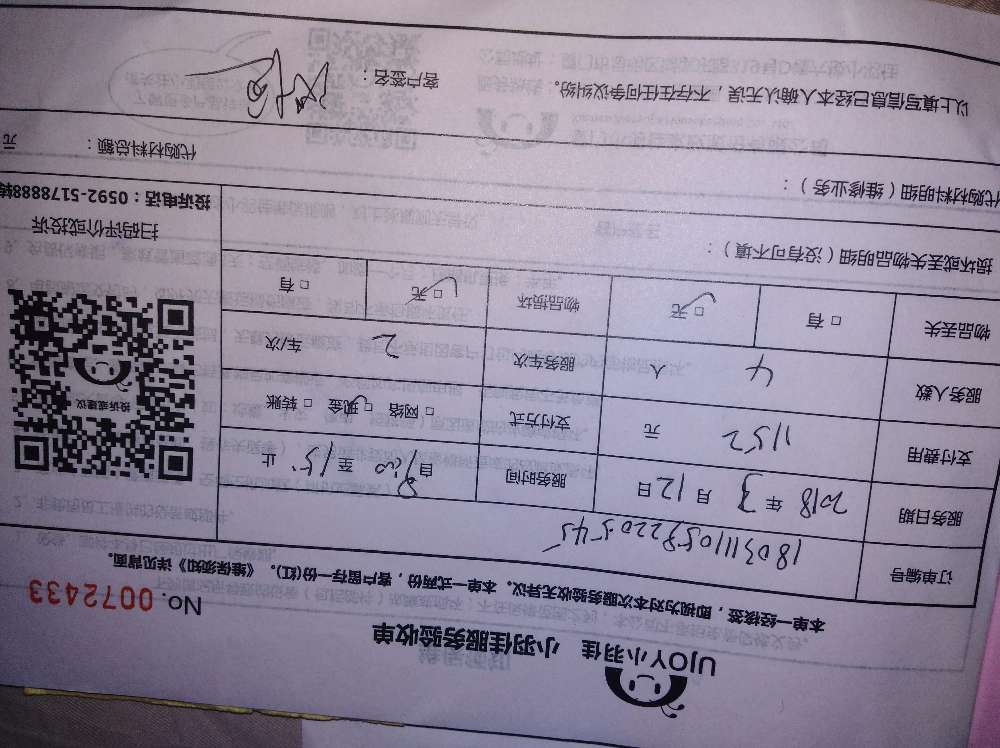 UJOY小羽佳 小羽佳服务验收单
No. 0072433
本单一经核签，即视为对本次服务验收无异议。本单一式两份，客户留存一份(红)。《维保须知》详见背面。
订单编号 18031110592220545
服务日期 2018 年 3 月 12 日 服务时间 自 8:00 至 15: 止
支付费用 1152 元 支付方式 □ 网络 □ 现金 □ 转账
服务人数 4 人 服务车次 2 车/次
物品丢失 □ 有 □ 无 物品损坏 □ 无 □ 有
投诉或建议
损坏或丢失物品明细（没有可不填）：
扫码评价或投诉
投诉电话：0592-5178888转
代购材料明细（维修业务）：
代购材料总额： 元
以上填写信息已经本人确认无误，不存在任何争议纠纷。 客户签名：